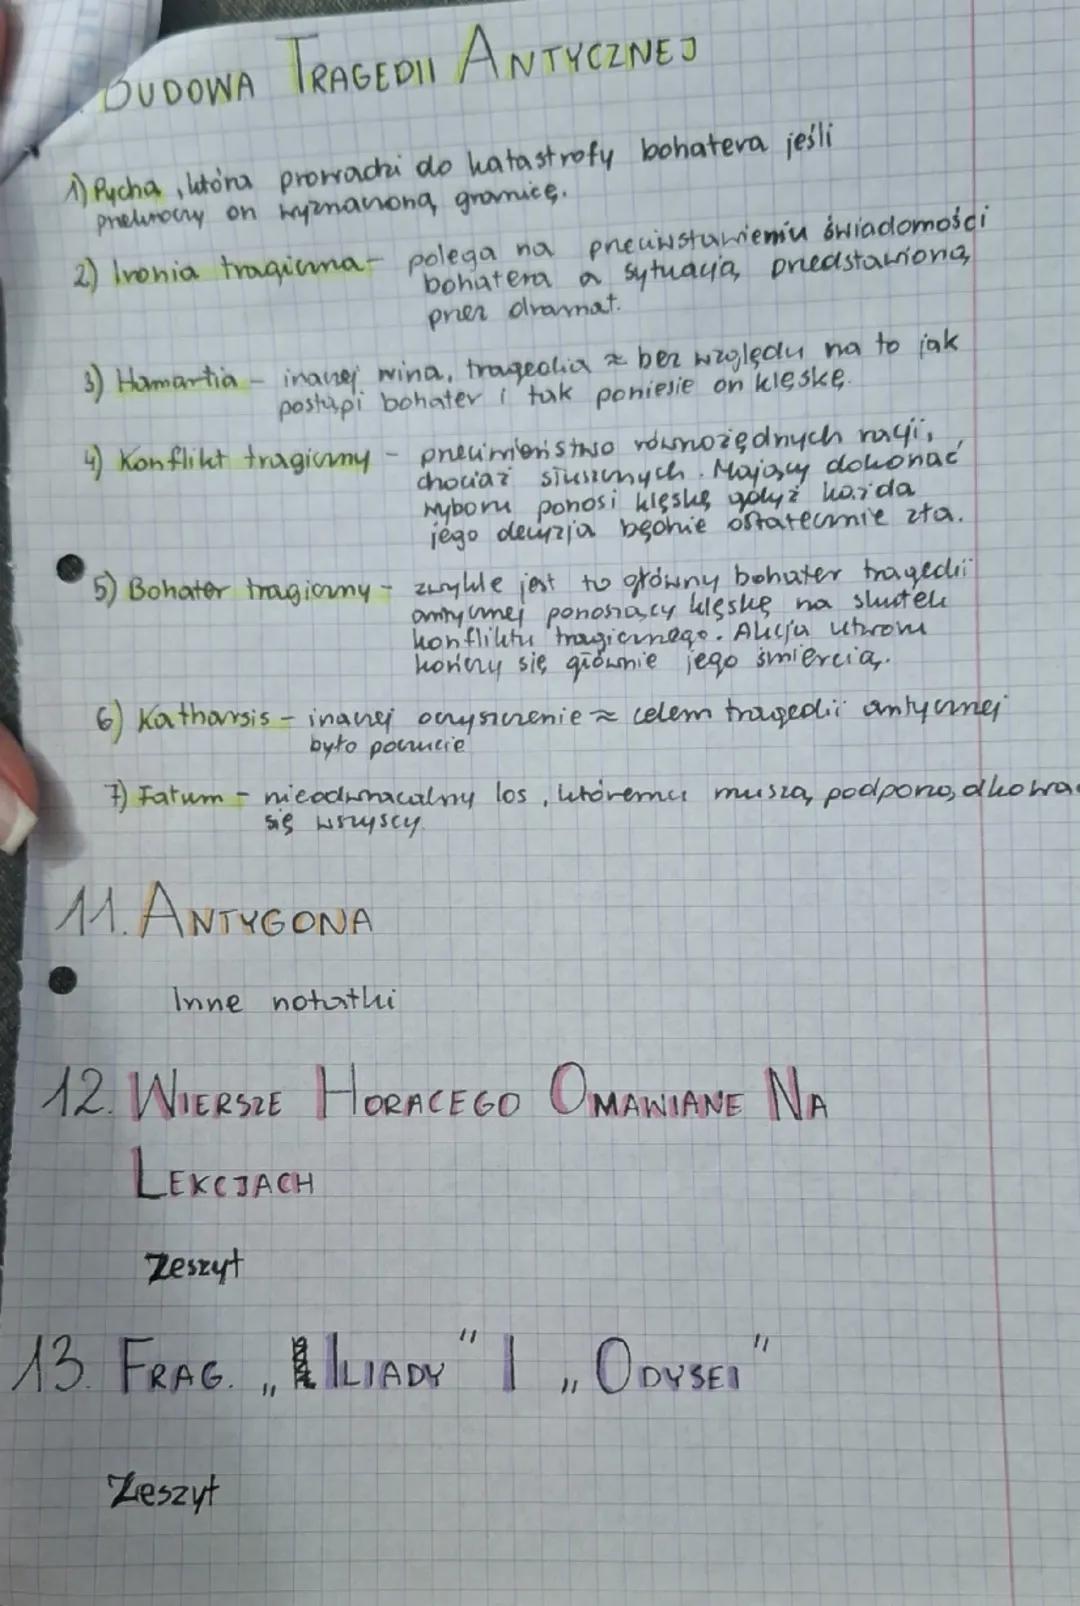 BUDOWA TRAGEDII ANTYCZNEJ
1) Pycha, która prowadzi do katastrofy bohatera jeśli
przekroczy on wyznaczoną granicę.
2) Ironia tragiczna - polega na przeciwstawieniu świadomości
bohatera a sytuacją przedstawioną
przez dramat.
3) Hamartia - inaczej wina, tragedia ≈ bez względu na to jak
postąpi bohater i tak poniesie on klęskę.
4) Konflikt tragiczny - przeciwieństwo równorzędnych racji,
chociaż słusznych. Mający dokonać
wyboru ponosi klęskę gdyż każda
jego decyzja będzie ostatecznie zła.
5) Bohater tragiczny - zwykle jest to główny bohater tragedii
antycznej ponoszący klęskę na skutek
konfliktu tragicznego. Akcja utworu
kończy się głównie jego śmiercią.
6) Katharsis - inaczej oczyszczenie ≈ celem tragedii antycznej
było poczucie
7) Fatum - nieodwracalny los, któremu muszą podporządkować
się wszyscy.
11. ANTYGONA
Inne notatki
12. WIERSZE HORACEGO OMAWIANE NA
LEKCJACH
Zeszyt
13. FRAG. „ILIADY" I „ODYSEI"
Zeszyt